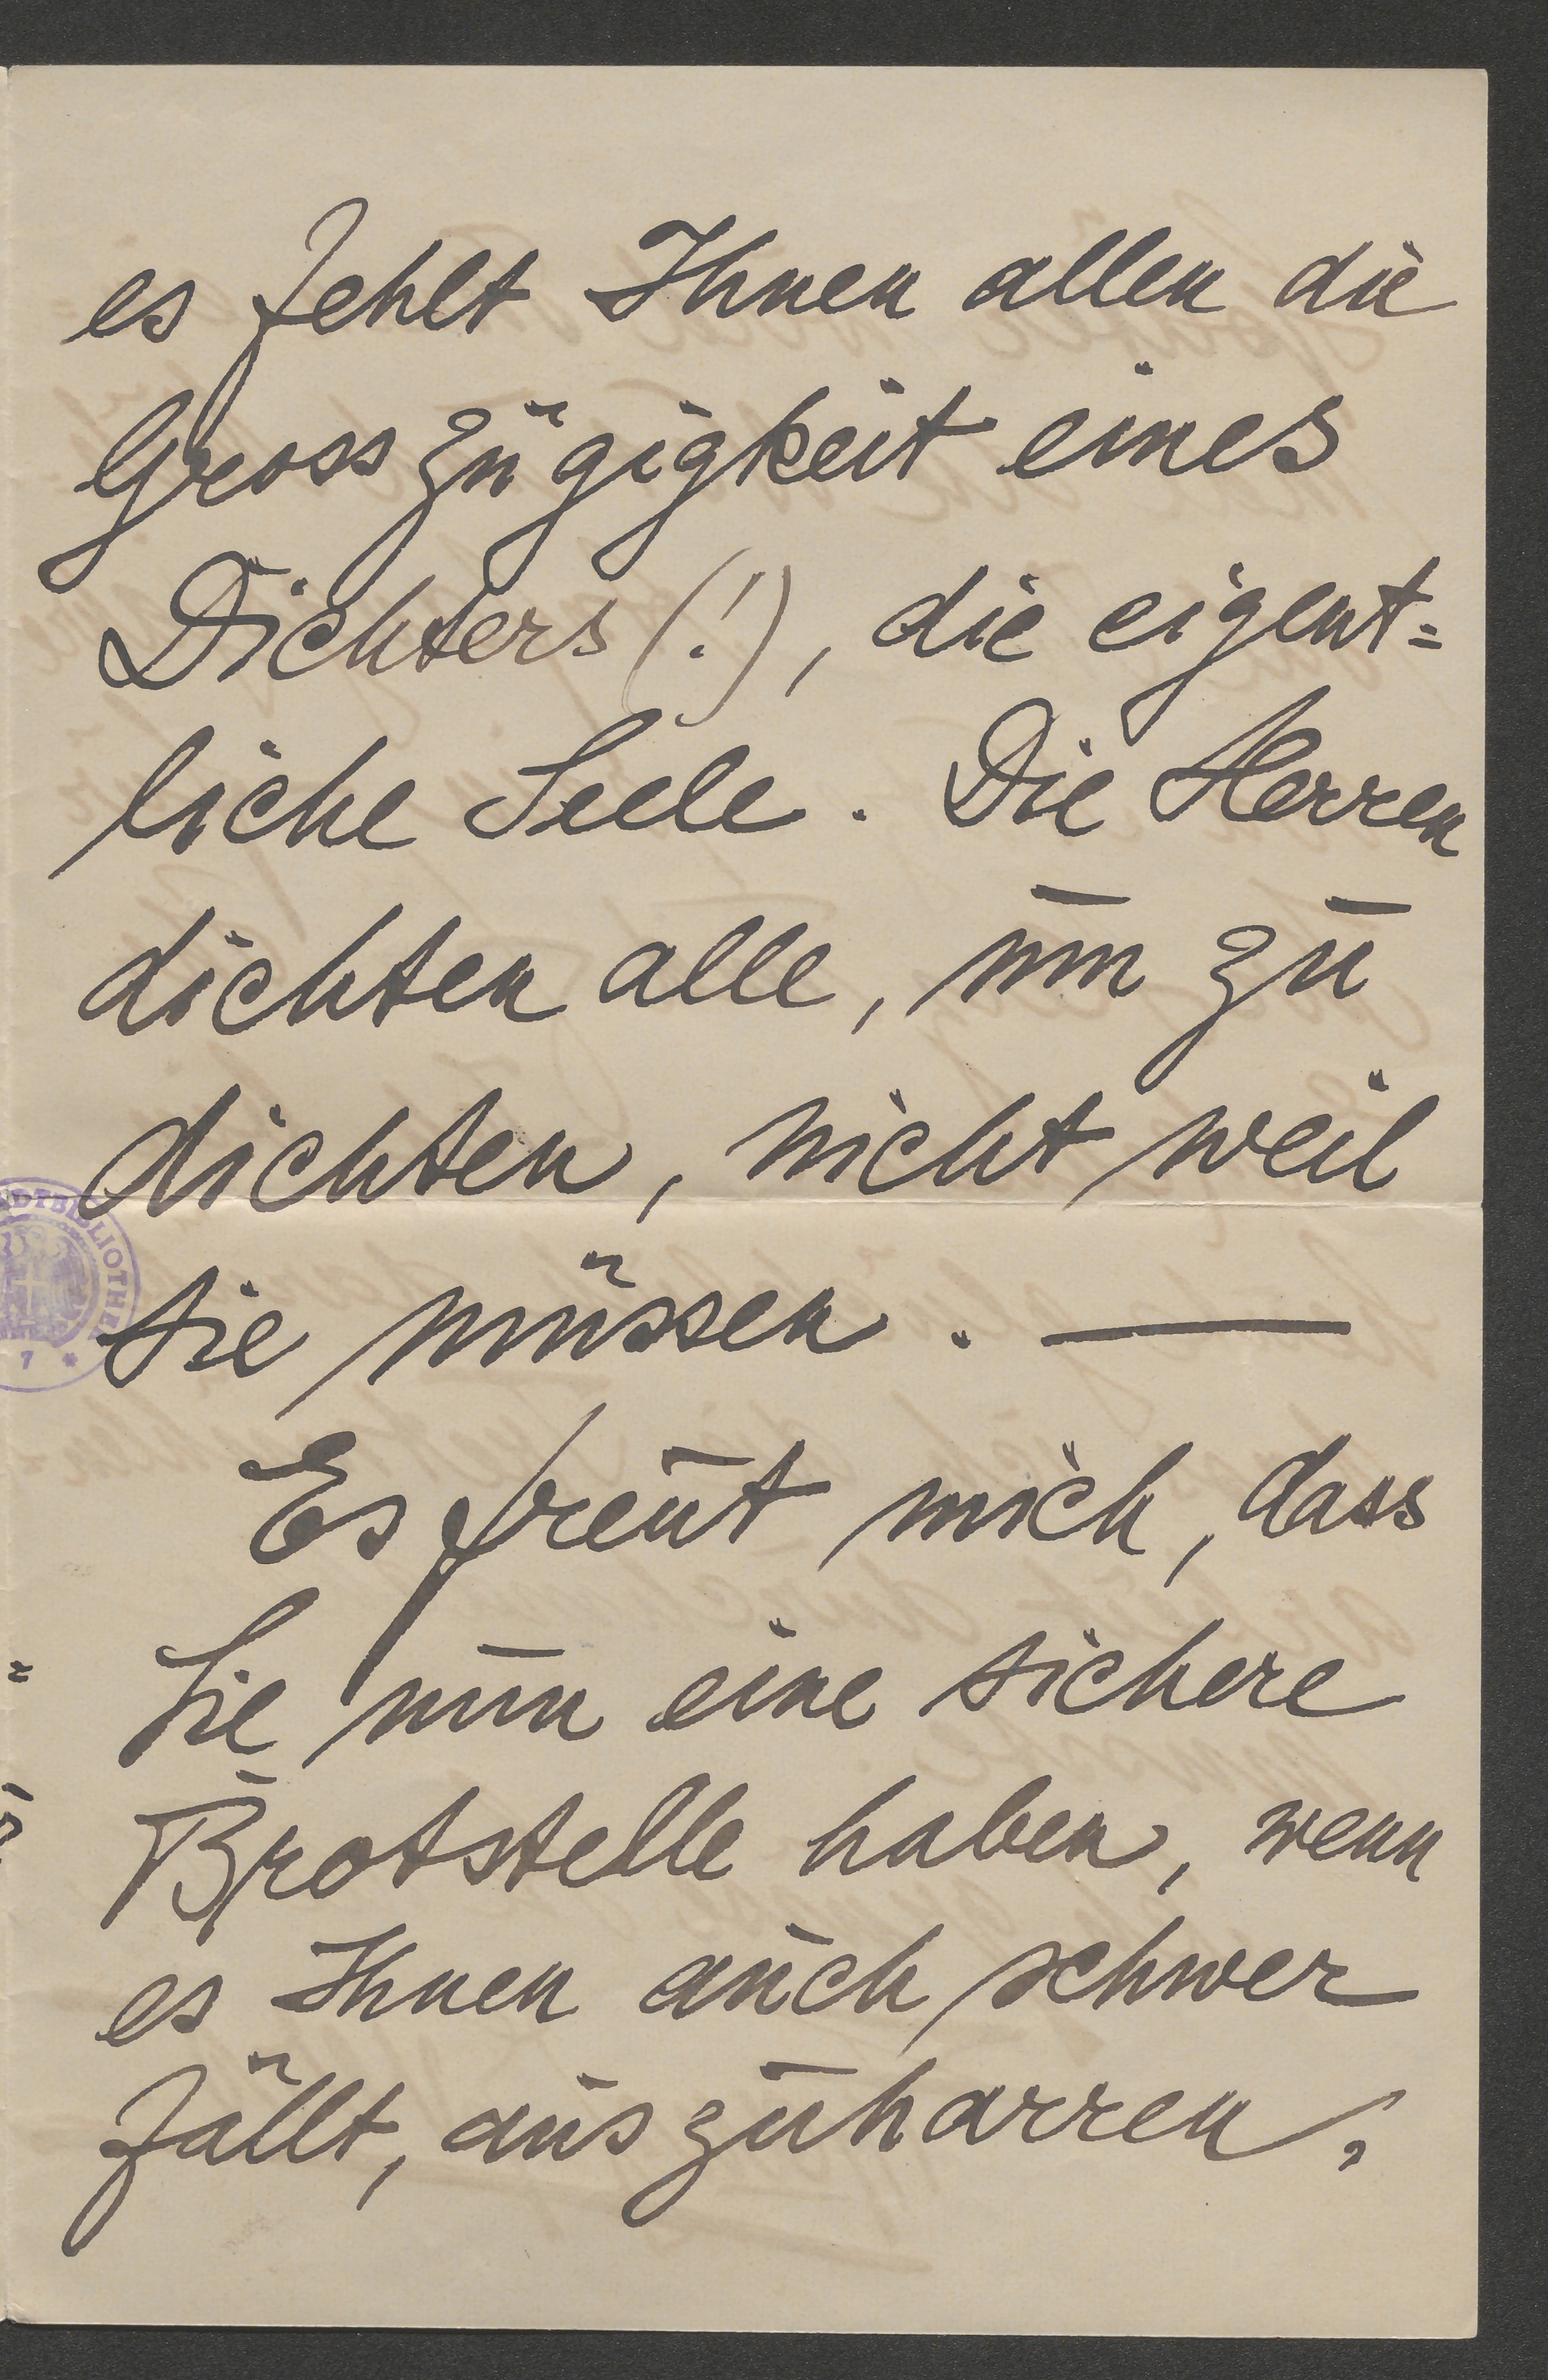 es fehlt Ihnen allen die
Grosszügigkeit eines
Dichters (!), die eigent=
liche Seele. Die Herren
dichten alle, um zu
dichten, nicht weil
sie müssen. —
Es freut mich, dass
Sie nun eine sichere
Brotstelle haben, wenn
es Ihnen auch schwer
fällt, auszuharren,
7 *